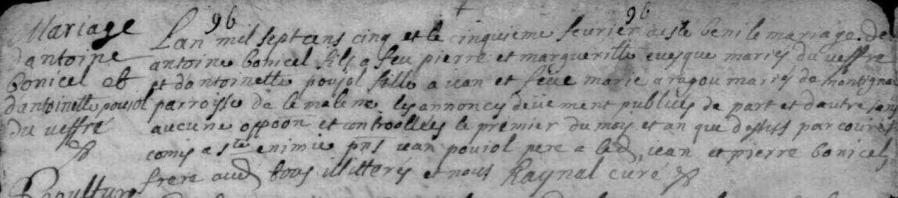 96 96
Mariage
d'antoine
bonicel et
d'antoinette poujol
du veffre
Lan mil sept cens cinq et le cinquieme fevrier a este beni le mariage de
antoine bonicel fils a feu pierre et margueritte eves que maries du veffre
et d'antoinette poujol fille a jean et feue marie aragou maries de montignac
parroisse de la malene les annonces deuement publiees de part et dautre sans
aucune oppoon et controollees le premier du mois et an que dessus par
comis a ste enimie pns jean poujol pere a lad jean et pierre bonicel
frere aud tous illitteres et nous Raynal curé